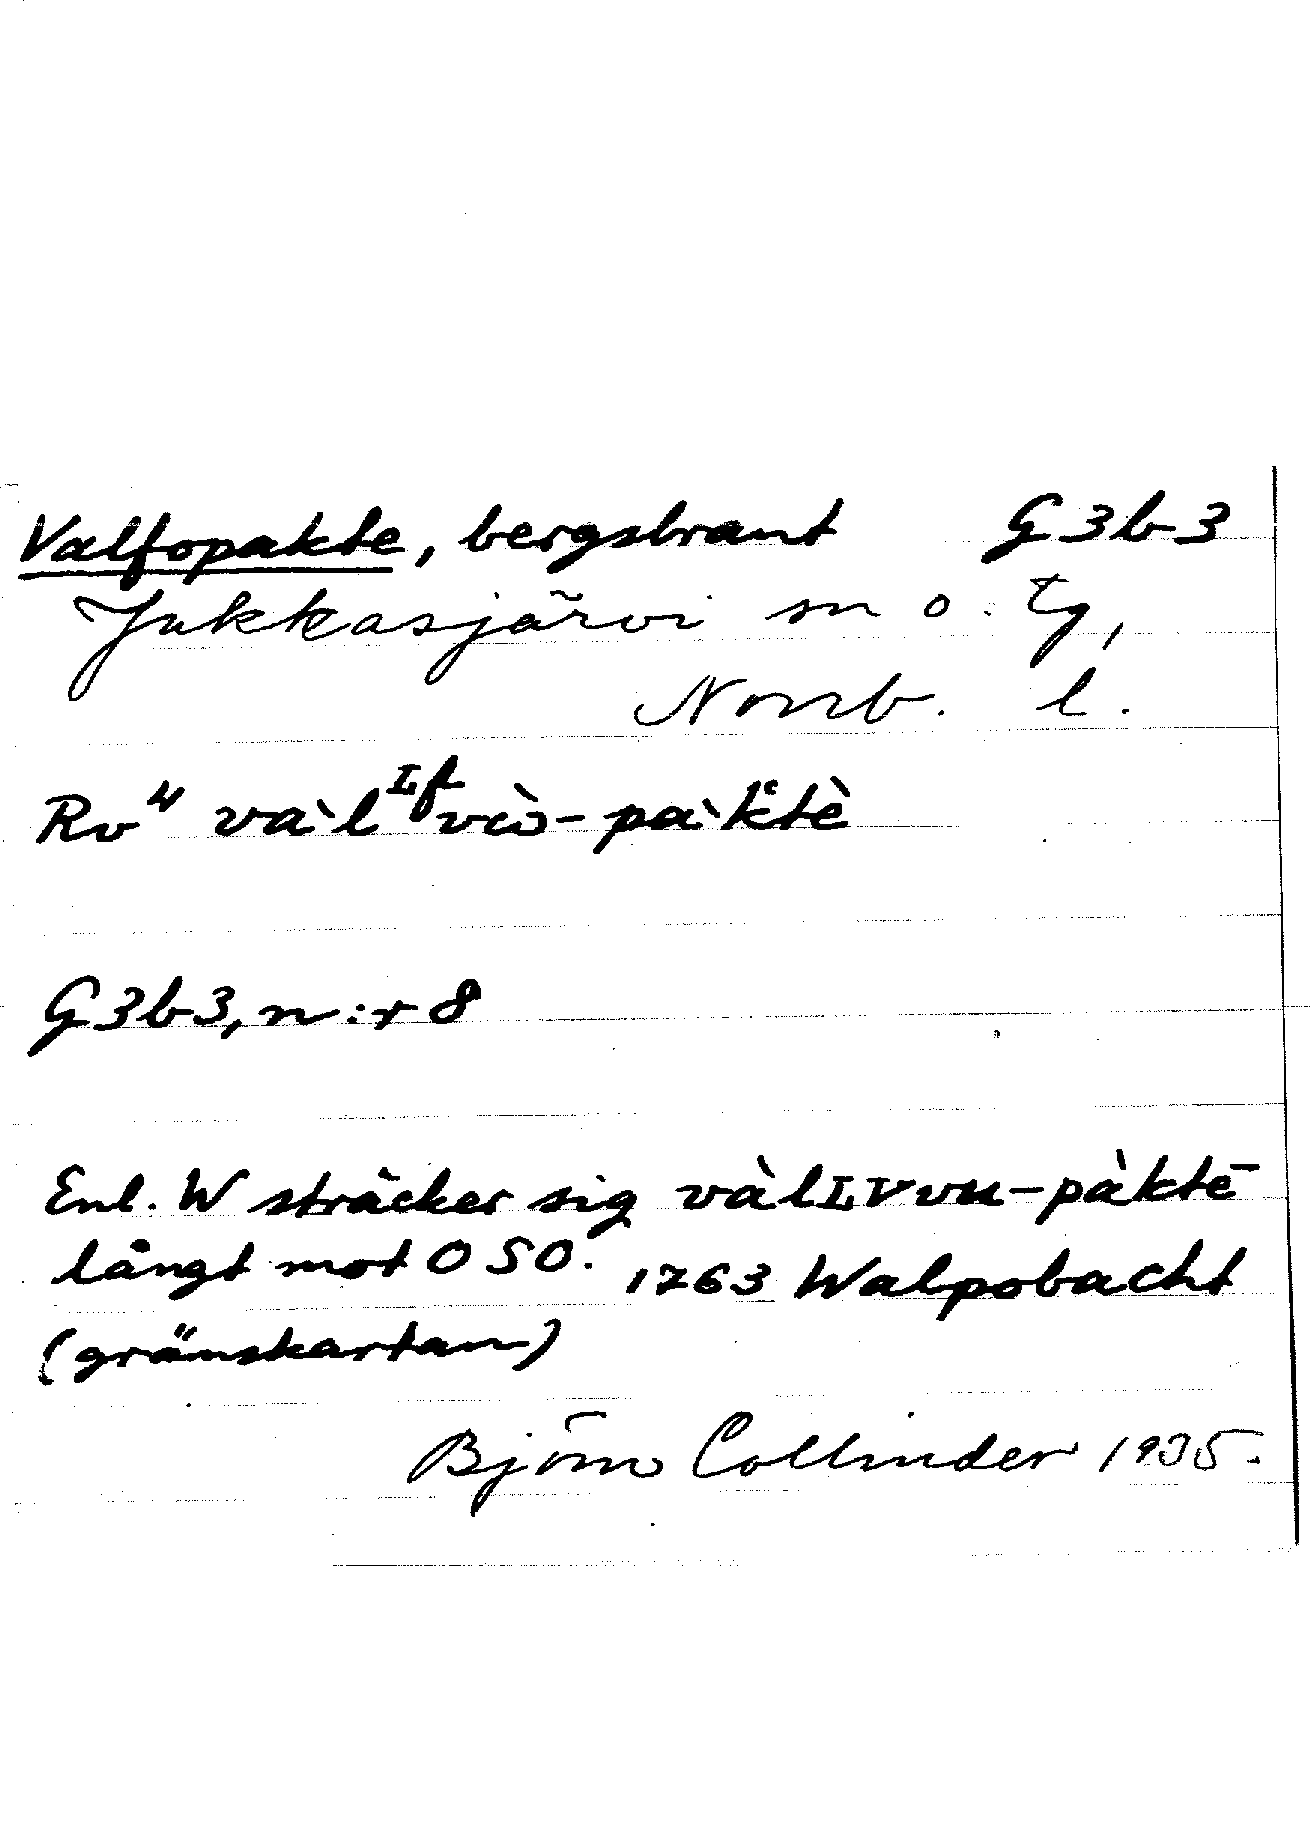 Valfopakte, bergsbrant G3b3
Jukkasjärvi sn o. tg,
Norrb. l.
Rv⁴
G3b3, n:r 8
Enl. W sträcker sig vàlLVvu-pàktē
långt mot OSO. 1763 Walpobacht
(gränskartan)
Björn Collinder 1935.